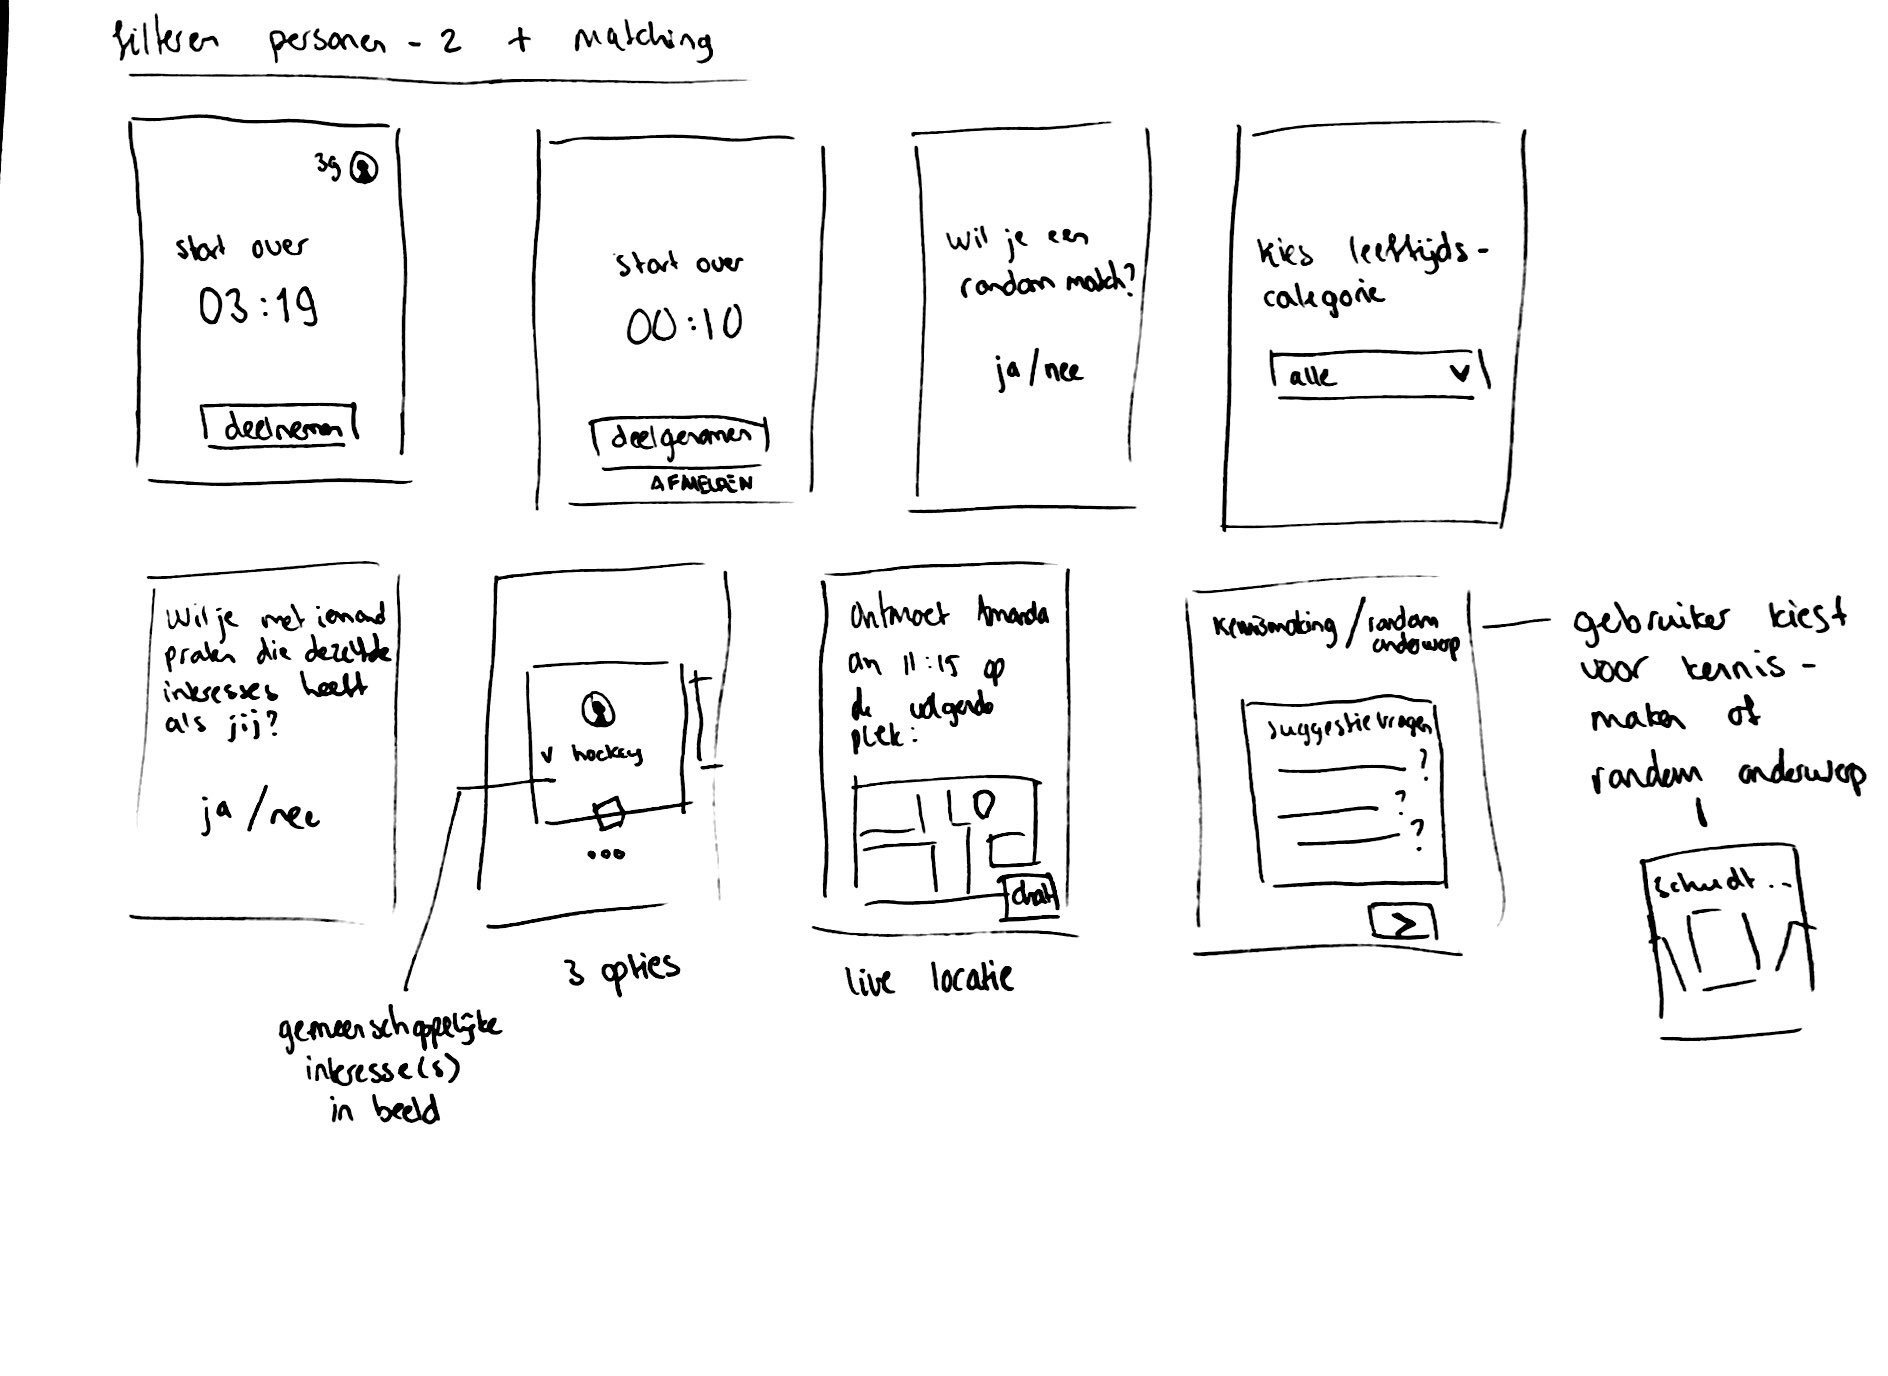 filteren personen - 2 + matching
39
start over
03:19
deelnemen
start over
00:10
deelgenomen
AFMELDEN
Wil je een
random match?
ja/nee
Kies leeftijds-
categorie
alle
Wil je met iemand
praten die dezelfde
interesses heeft
als jij?
ja/nee
v hockey
3 opties
gemeenschappelijke
interesse(s)
in beeld
Ontmoet Amanda
om 11:15 op
de volgende
plek:
chat
live locatie
Kennismaking / random
onderwerp
suggestie vragen
?
?
?
>
gebruiker kiest
voor kennis-
maken of
random onderwerp
schudt...